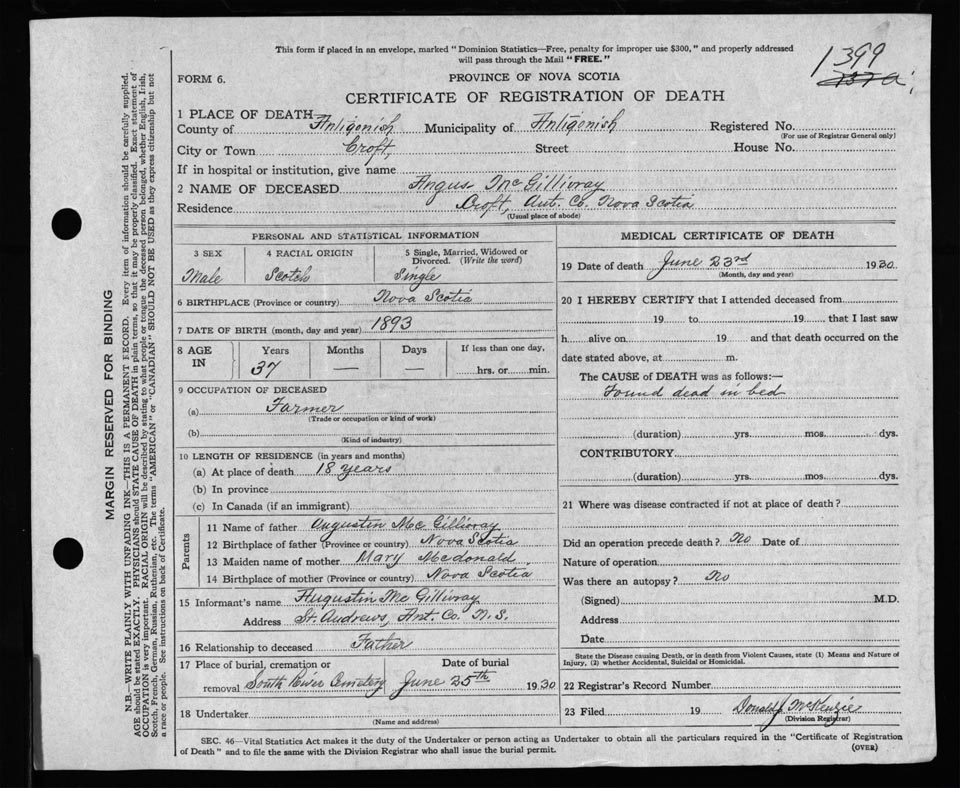 This form if placed in an envelope, marked "Dominion Statistics—Free, penalty for improper use $300," and properly addressed
will pass through the Mail "FREE."
1399
FORM 6.
PROVINCE OF NOVA SCOTIA
CERTIFICATE OF REGISTRATION OF DEATH
1 PLACE OF DEATH
County of Antigonish Municipality of Antigonish Registered No.
(For use of Registrar General only)
City or Town Croft, Street House No.
If in hospital or institution, give name
2 NAME OF DECEASED Angus McGillivray
Residence Croft, Ant. Co. Nova Scotia
(Usual place of abode)
PERSONAL AND STATISTICAL INFORMATION
3 SEX 4 RACIAL ORIGIN 5 Single, Married, Widowed or
Divorced. (Write the word)
Male Scotch Single
6 BIRTHPLACE (Province or country) Nova Scotia
7 DATE OF BIRTH (month, day and year) 1893
8 AGE IN Years Months Days If less than one day,
37 — — hrs. or min.
9 OCCUPATION OF DECEASED
(a) Farmer
(Trade or occupation or kind of work)
(b)
(Kind of industry)
10 LENGTH OF RESIDENCE (in years and months)
(a) At place of death 18 years
(b) In province
(c) In Canada (if an immigrant)
Parents
11 Name of father Augustin McGillivray
12 Birthplace of father (Province or country) Nova Scotia
13 Maiden name of mother Mary Mcdonald
14 Birthplace of mother (Province or country) Nova Scotia
15 Informant's name Augustin McGillivray
Address St. Andrews, Ant. Co. N.S.
16 Relationship to deceased Father
17 Place of burial, cremation or Date of burial
removal South River Cemetery June 25th 1930
18 Undertaker
(Name and address)
MEDICAL CERTIFICATE OF DEATH
19 Date of death June 23rd 1930
(Month, day and year)
20 I HEREBY CERTIFY that I attended deceased from
19 to 19 that I last saw
h alive on 19 and that death occurred on the
date stated above, at m.
The CAUSE of DEATH was as follows:—
Found dead in bed
(duration) yrs. mos. dys.
CONTRIBUTORY
(duration) yrs. mos. dys.
21 Where was disease contracted if not at place of death?
Did an operation precede death? No Date of
Nature of operation
Was there an autopsy? No
(Signed) M.D.
Address
Date
State the Disease causing Death, or in death from Violent Causes, state (1) Means and Nature of
Injury, (2) whether Accidental, Suicidal or Homicidal.
22 Registrar's Record Number
23 Filed 19 Donald J McKenzie
(Division Registrar)
SEC. 46—Vital Statistics Act makes it the duty of the Undertaker or person acting as Undertaker to obtain all the particulars required in the "Certificate of Registration
of Death" and to file the same with the Division Registrar who shall issue the burial permit.
(OVER)
MARGIN RESERVED FOR BINDING
N.B.—WRITE PLAINLY WITH UNFADING INK—THIS IS A PERMANENT RECORD. Every item of information should be carefully supplied.
AGE should be stated EXACTLY. PHYSICIANS should STATE CAUSE OF DEATH in plain terms, so that it may be properly classified. Exact statement of
OCCUPATION is very important. RACIAL ORIGIN will be described by stating to what people or tongue the deceased person belonged, whether English, Irish,
Scotch, French, German, Russian, Ruthenian, etc. The terms "AMERICAN" or "CANADIAN" SHOULD NOT BE USED as they express citizenship but not
a race or people. See instructions on back of Certificate.